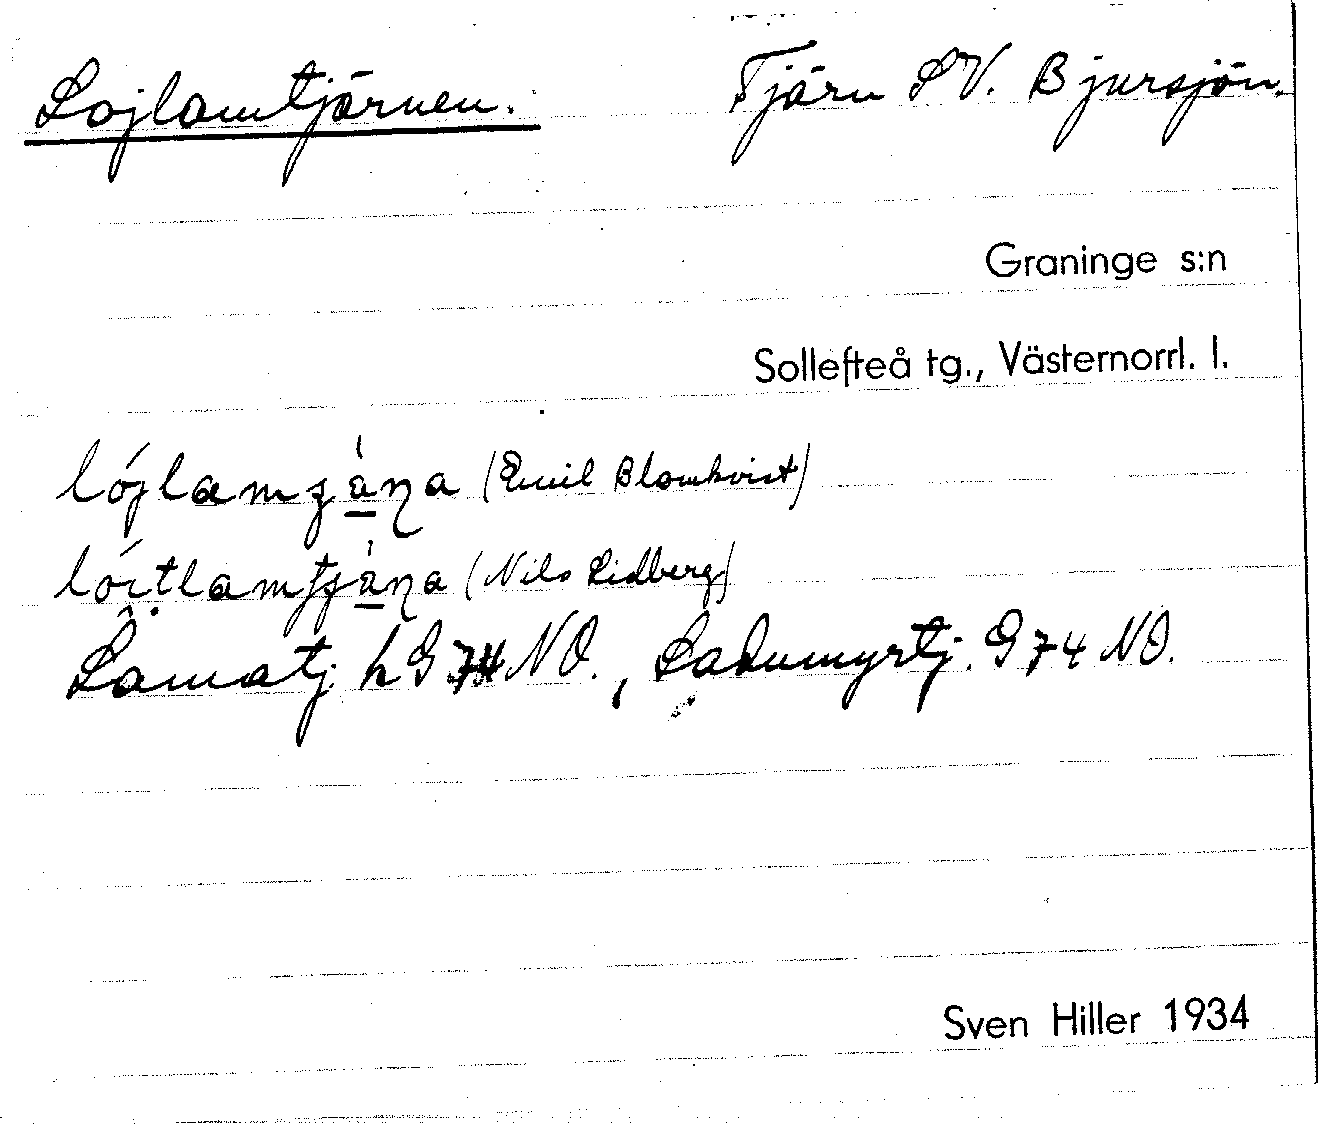 Lojlamtjärnen. Tjärn SV. Bjursjön.
Graninge s:n
Sollefteå tg., Västernorrl. l.
(Emil Blomkvist)
(Nils Lidberg)
Lamatj. h G 74 NO., Ladumyrtj. G 74 NO.
Sven Hiller 1934